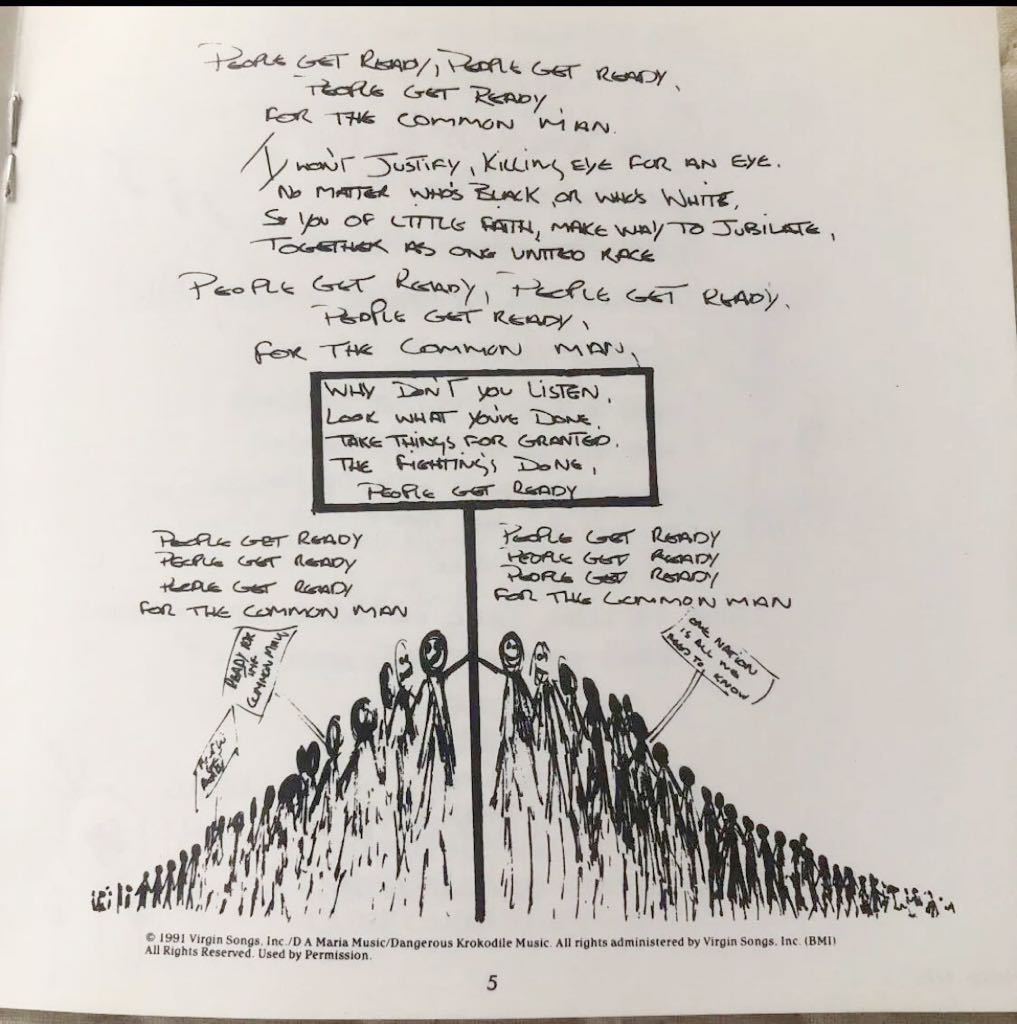 PEOPLE GET READY, PEOPLE GET READY,
PEOPLE GET READY
FOR THE COMMON MAN.
I WON'T JUSTIFY, KILLING EYE FOR AN EYE.
NO MATTER WHO'S BLACK OR WHO'S WHITE,
SO YOU OF LITTLE FAITH, MAKE WAY TO JUBILATE,
TOGETHER AS ONE UNITED RACE
PEOPLE GET READY, PEOPLE GET READY.
PEOPLE GET READY,
FOR THE COMMON MAN,
WHY DON'T YOU LISTEN,
LOOK WHAT YOU'VE DONE,
TAKE THINGS FOR GRANTED.
THE FIGHTING'S DONE,
PEOPLE GET READY
PEOPLE GET READY
PEOPLE GET READY
PEOPLE GET READY
FOR THE COMMON MAN
PEOPLE GET READY
PEOPLE GET READY
PEOPLE GET READY
FOR THE COMMON MAN
READY FOR
THE
COMMON MAN
ONE NATION
IS ALL WE
NEED TO KNOW
© 1991 Virgin Songs, Inc./D A Maria Music/Dangerous Krokodile Music. All rights administered by Virgin Songs, Inc. (BMI)
All Rights Reserved. Used by Permission.
5